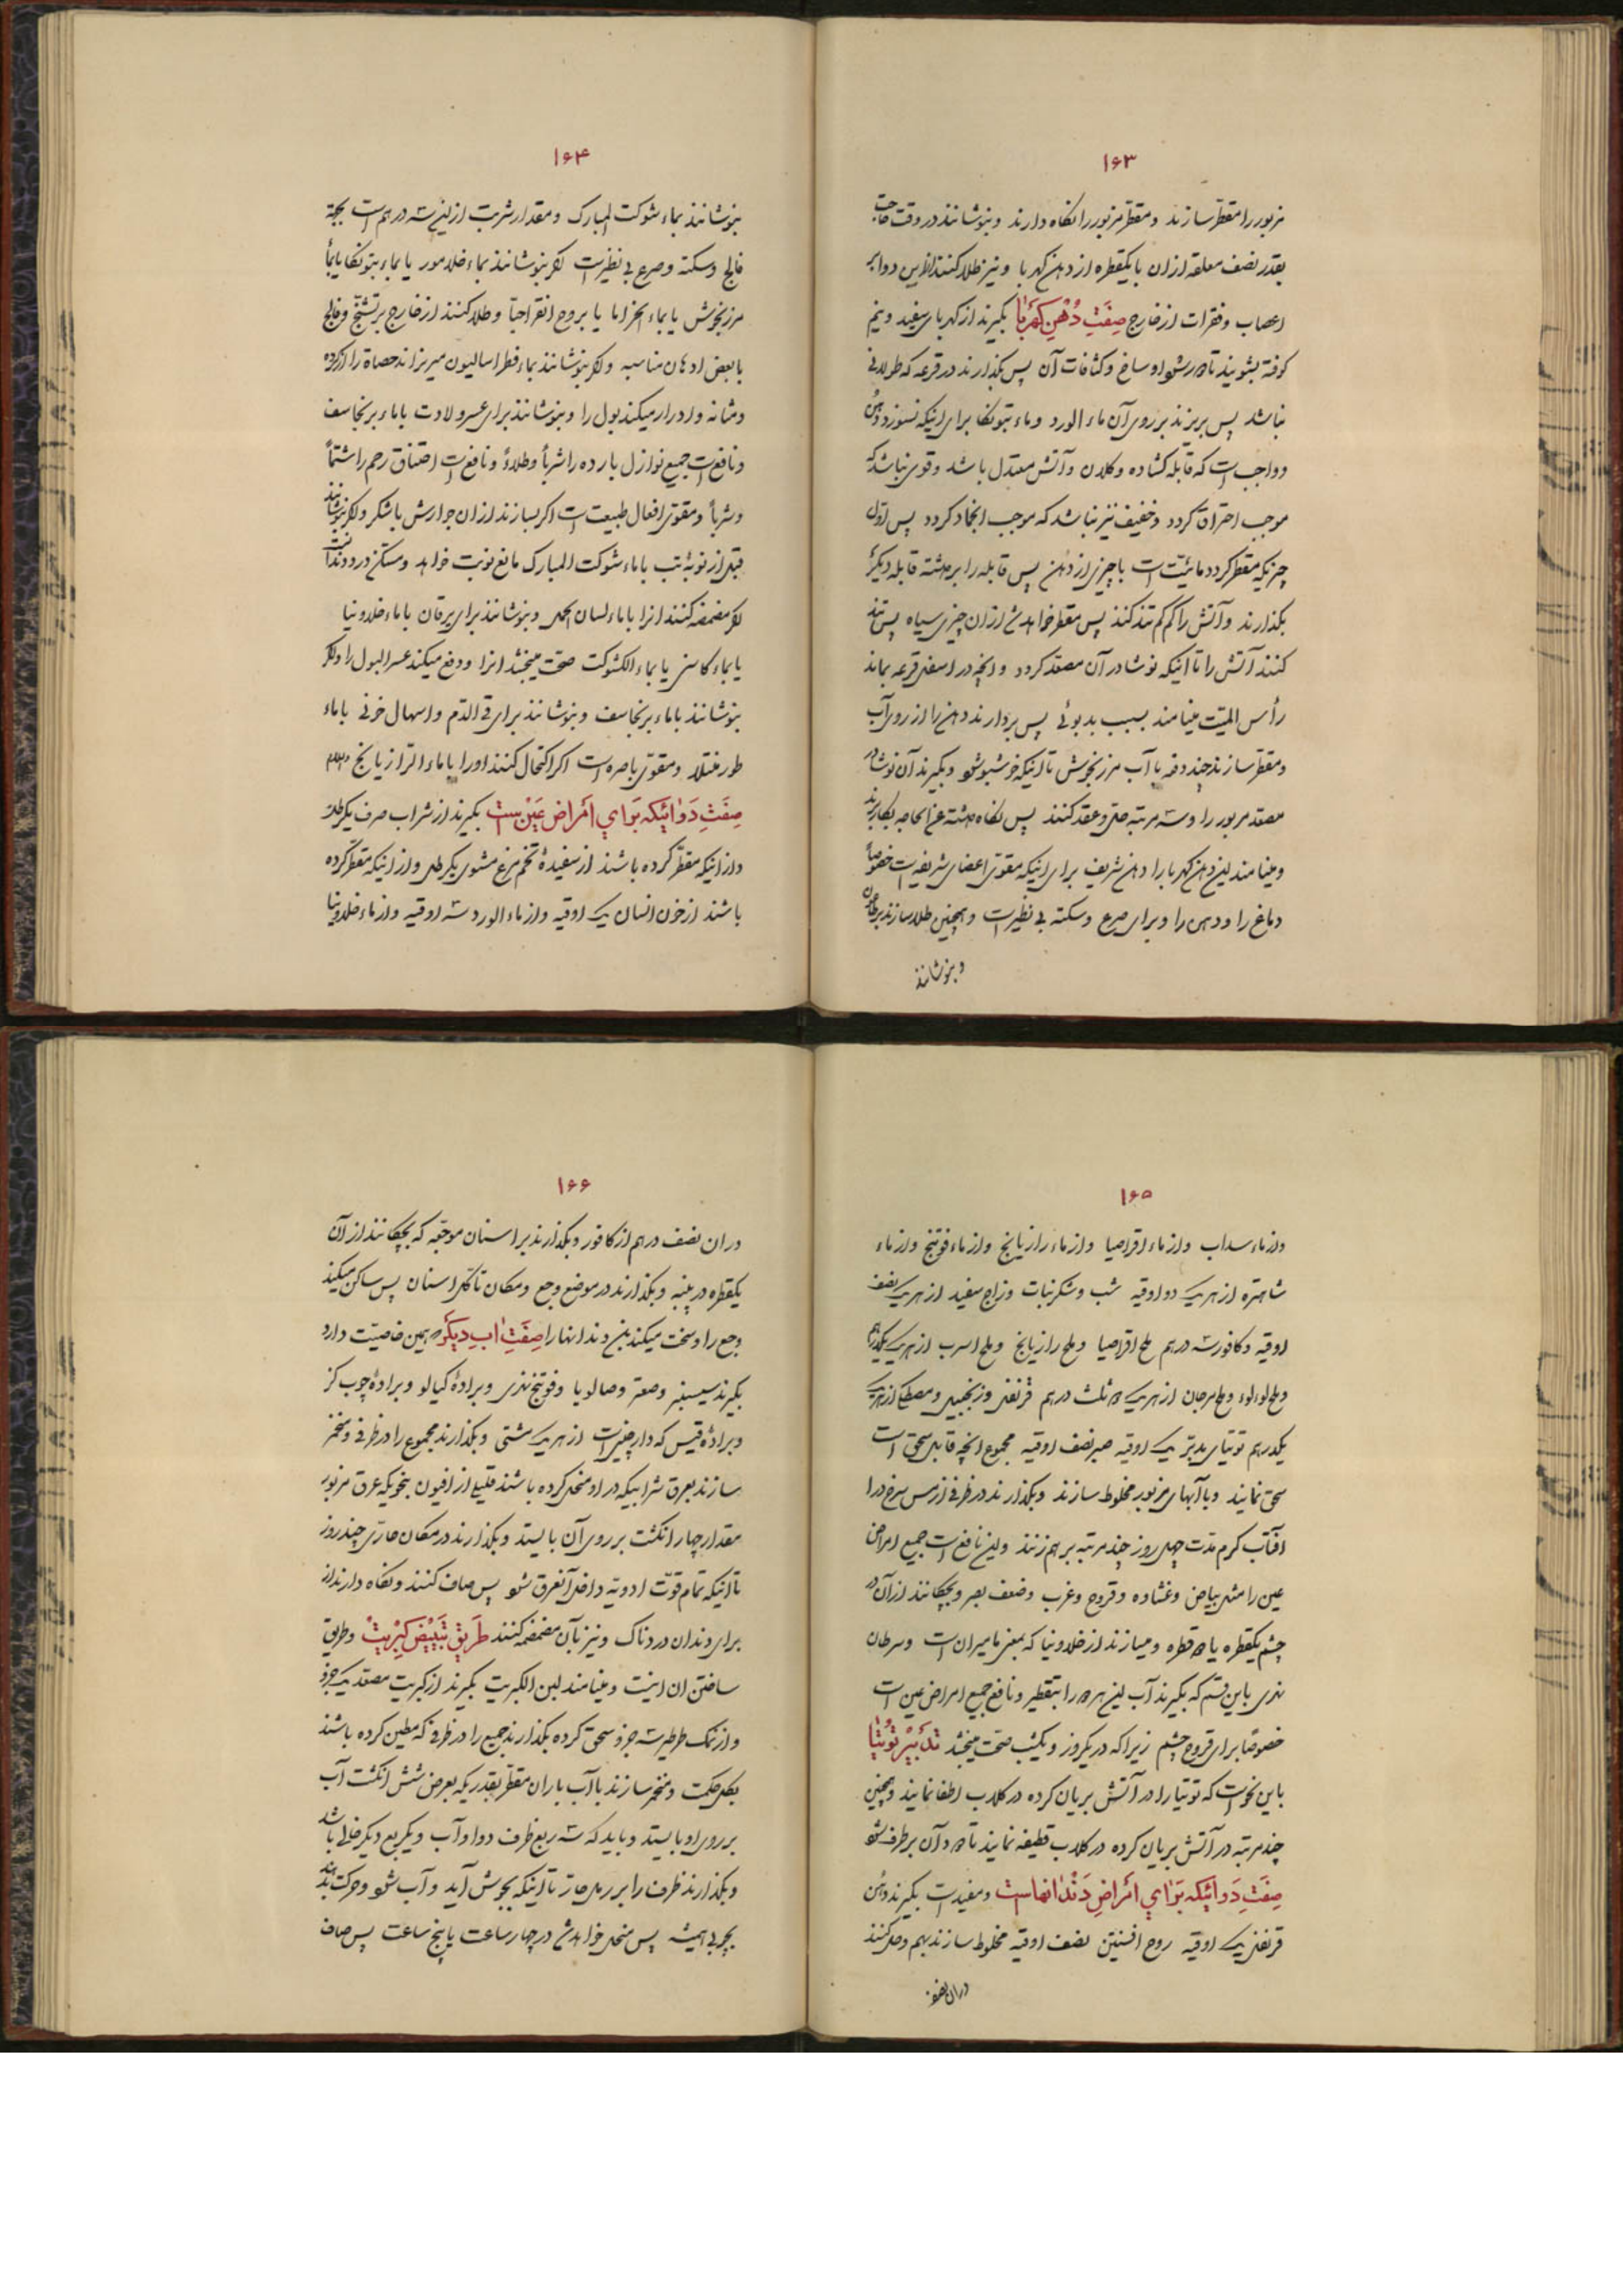 ۱۶۳
مزبور را مقطر سازند و مقطر مزبور را نکاه دارند و بنوشانند در وقت حاجت
بقدر نصف ملعقه ازان با یکقطره از دهن کهربا و نیز طلا کنند ازاین دوا بر
اعصاب و فقرات از خارج صفت دهن کهربا بکیرند از کهربای سفید و نیم
کوفته بشویند تا دور شود اوساخ و کثافات آن پس بکذارند در قرعه که طولانی
نباشد پس بریزند بر روی آن ماء الورد و ماء بتونکا برای اینکه نسوزد دهن
و واجب است که قابله کشاده و کلان و آتش معتدل باشد و قوی نباشد که
موجب احتراق کردد و خفیف نیز نباشد که موجب انجماد کردد پس اول
چیزیکه مقطر کردد مائیت است با چیزی از دهن پس قابله را برداشته قابله دیکر
بکذارند و آتش را کم کم تند کنند پس مقطر خواهد شد ازان چیزی سیاه پس تند
کنند آتش را تا اینکه نوشادر آن مصعد کردد و انچه در اسفل قرعه بماند
رأس المیت مینامند بسبب بدبوئی پس بردارند دهن را از روی آب
و مقطر سازند چند دفعه با آب مرزنجوش تا اینکه خوشبو شود و بکیرند آن نوشادر
مصعد مزبور را و سه مرتبه حل و عقد کنند پس نکاه داشته عند الحاجه بکار برند
و مینامند این دهن کهربا را دهن شریف برای اینکه مقوی اعضای شریفه است خصوصاً
دماغ را و دهن را و برای صرع و سکته بی نظیر است و همچنین طلا سازند بر
و بنوشانند
۱۶۴
بنوشانند بماء شوکت المبارک و مقدار شربت ازین سه درهم است بجهة
فالج و سکته و صرع بی نظیر است اکر بنوشانند بماء خلامور یا بماء بتونکا یا بماء
مرزنجوش یا بماء الخزاما یا بروح انقراحبا و طلا کنند از خارج بر تشنج و فالج
با بعض ادهان مناسبه و اکر بنوشانند بماء فطراسالیون میریزاند حصاة را از کرده
و مثانه و ادرار میکند بول را و بنوشانند برای عسر ولادت با ماء برنجاسف
و نافع است جمیع نوازل بارده را شرباً و طلاءً و نافع است اختناق رحم را شماً
و شرباً و مقوی افعال طبیعت است اکر بسازند ازان جوارش با شکر و اکر بنوشانند
قبل از نوبهٔ تب با ماء شوکت المبارک مانع نوبت خواهد و مسکن درد دندانست
اکر مضمضه کنند انرا با ماء لسان الحمل و بنوشانند برای یرقان با ماء خلدونیا
یا بماء کاسنی یا بماء الکشوت صحت میبخشد انرا و دفع میکند عسر البول را و اکر
بنوشانند با ماء برنجاسف و بنوشانند برای قی الدم و اسهال خونی با ماء
طورمنتلا و مقوی باصره است اکر اکتحال کنند اورا با ماء الرازیانج
صفت دوائیکه برای امراض عین است بکیرند از شراب صرف یکرطل
و از انیکه مقطر کرده باشند از سفیدهٔ تخم مرغ مشوی یکرطل و از انیکه مقطر کرده
باشند از خون انسان یک اوقیه و از ماء الورد سه اوقیه و از ماء خلدونیا
۱۶۵
و از ماء سداب و از ماء اقراصیا و از ماء رازیانج و از ماء فوتنج و از ماء
شاهتره از هریک دو اوقیه شب و شکر نبات و زاج سفید از هریک نصف
اوقیه و کافور سه درهم ملح اقراصیا و ملح رازیانج و ملح اسرب از هریک یکدرهم
و ملح لؤلؤ و ملح مرجان از هریک دو ثلث درهم قرنفل و زنجبیل و مصطکی از هریک
یکدرهم توتیای مدبر یک اوقیه صبر نصف اوقیه مجموع انچه قابل سحق است
سحق نمایند و با آبهای مزبور مخلوط سازند و بکذارند در ظرفی از مس سرخ در
آفتاب کرم مدت چهل روز چند مرتبه بر هم زنند و این نافع است جمیع امراض
عین را مثل بیاض و غشاوه و قروح و غرب و ضعف بصر و بچکانند ازان در
چشم یکقطره یا دو قطره و میسازند از خلدونیا که بمعنی مامیران است و سرطان
نهری باین قسم که بکیرند آب این هردو را بتقطیر و نافع جمیع امراض عین است
خصوصاً برای قروح چشم زیرا که در یکروز و یکشب صحت میبخشد تدبیر توتیا
باین نحو است که توتیا را در آتش بریان کرده در کلاب اطفا نمایند و همچنین
چند مرتبه در آتش بریان کرده در کلاب قطیفه نمایند تا دود آن بر طرف شود
صفت دوائیکه برای امراض دندانهاست و مفید است بکیرند دهن
قرنفل یک اوقیه روح افسنتین نصف اوقیه مخلوط سازند بهم و حل کنند
دران نصف
۱۶۶
دران نصف درهم از کافور و بکذارند بر اسنان موجعه که بچکانند از آن
یکقطره در پنبه و بکذارند در موضع وجع و مکان تاکل اسنان پس ساکن میکند
وجع را و سخت میکند بن دندانها را صفت اب دیکر که همین خاصیت دارد
بکیرند سیسنبر و صعتر و صالویا و فوتنج نهری و برادهٔ کیالو و برادهٔ چوب کز
و برادهٔ قیس که دارچینی است از هریک مشتی و بکذارند مجموع را در ظرفی و مخمر
سازند بعرق شرابیکه در او منحل کرده باشند قلیلی از افیون بنحویکه عرق مزبور
مقدار چهار انکشت بر روی آن بایستد و بکذارند در مکان حاری چند روز
تا اینکه تمام قوت ادویه داخل آنعرق شود پس صاف کنند و نکاه دارند از
برای دندان دردناک و نیز بآن مضمضه کنند طریق تبییض کبریت و طریق
ساختن ان اینست و مینامند لبن الکبریت بکیرند از کبریت مصعد یک جزو
و از نمک طرطیر سه جزو سحق کرده بکذارند جمیع را در ظرفی که مطین کرده باشند
بکل حکمت و مخمر سازند با آب باران مقطر بقدریکه بعرض شش انکشت آب
بر روی او بایستد و باید که سه ربع ظرف دوا و آب و یکربع دیکر خالی باشد
و بکذارند ظرف را بر رمل حار تا اینکه بجوش آید و آب شود و حرکت دهند
بچوبی همیشه پس منحل خواهد شد در چهار ساعت یا پنج ساعت پس صاف